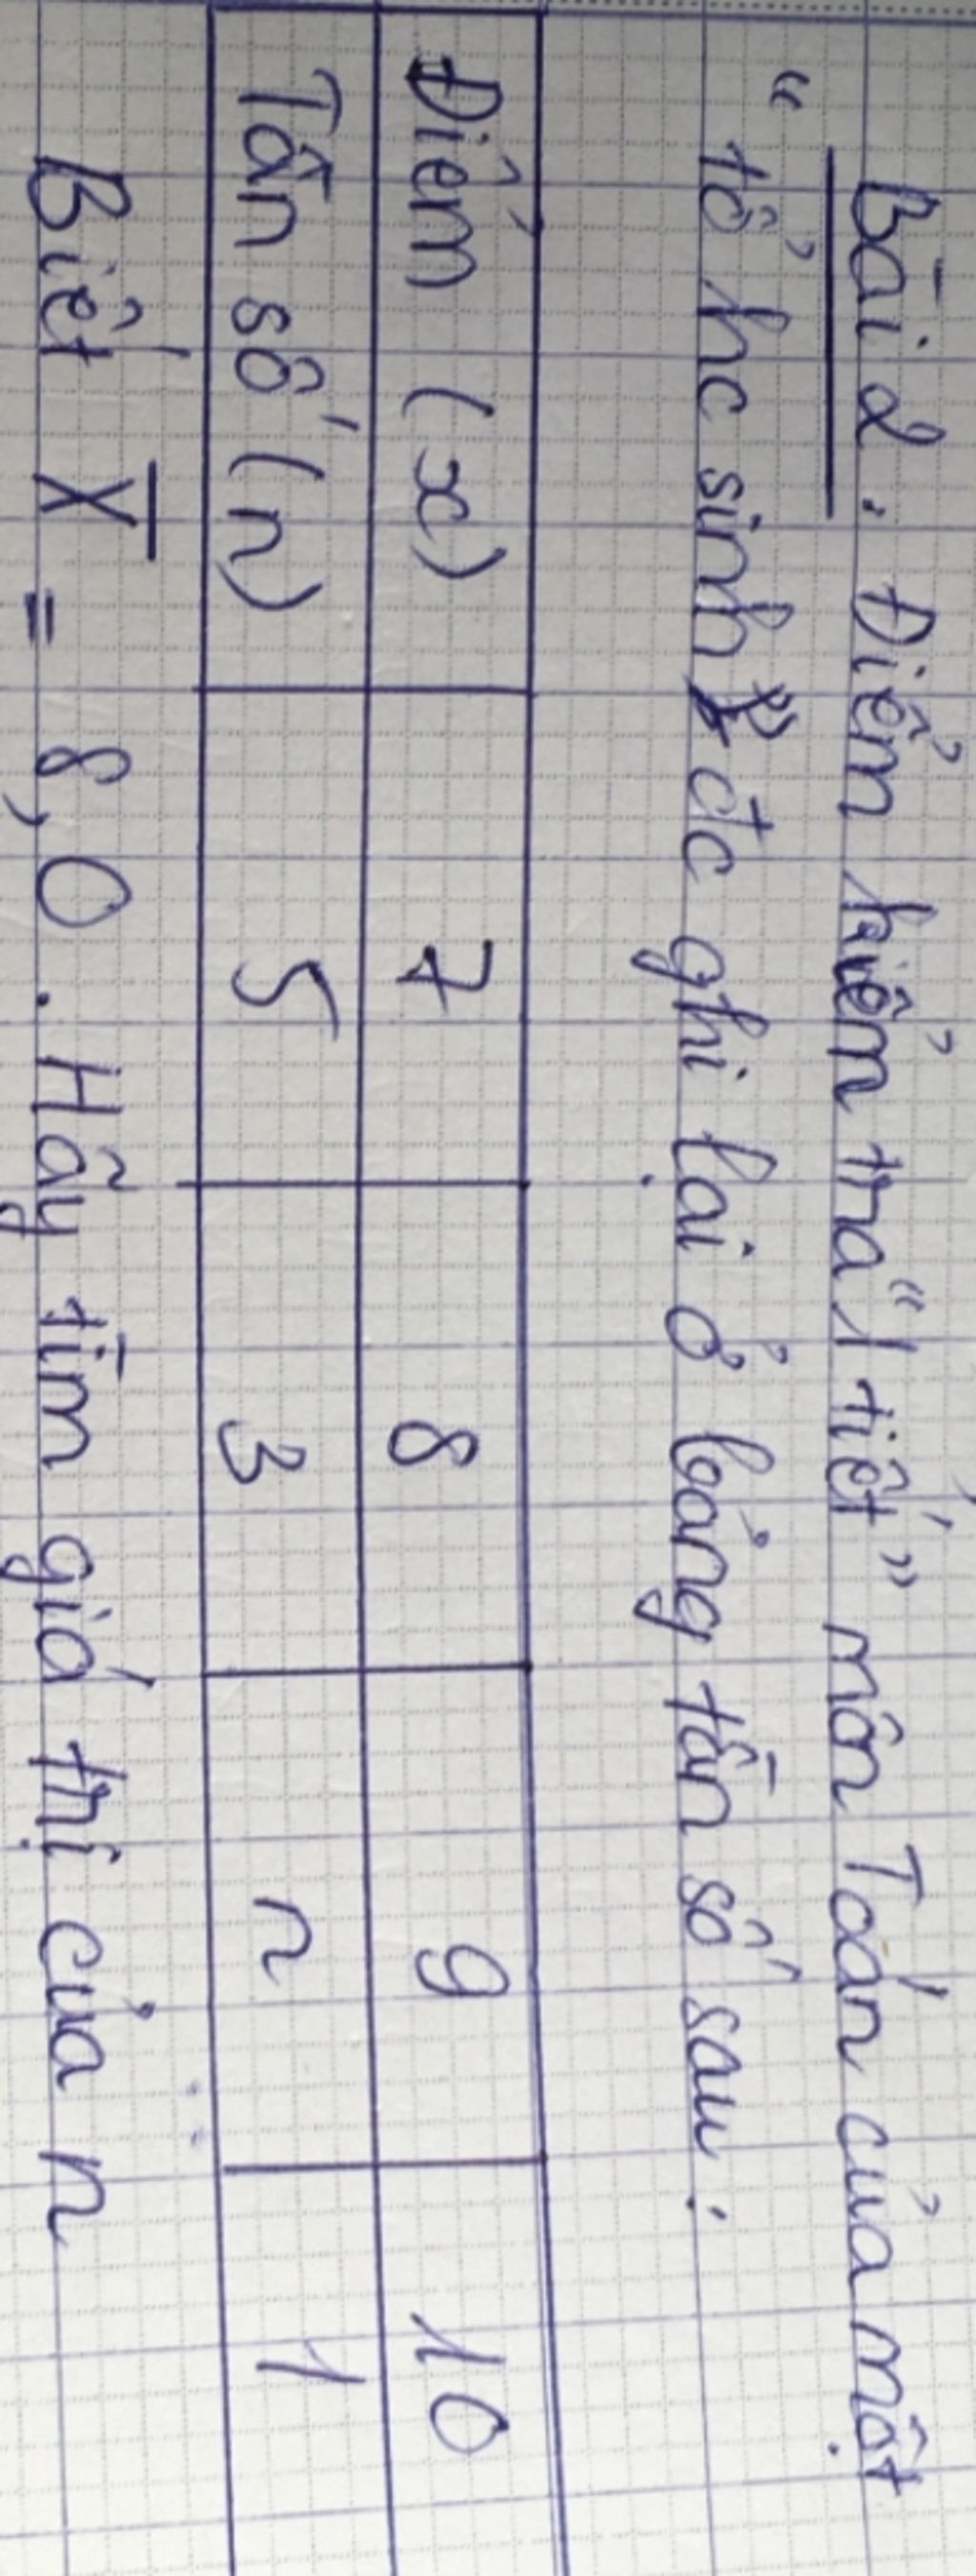 Bài 2. Điểm kiểm tra "1 tiết" môn Toán của một
"tổ hc sinh" đc ghi lại ở bảng tần số sau:
Điểm (x) 7 8 9 10
Tần số (n) 5 3 n 1
Biết X̅ = 8,0. Hãy tìm giá trị của n